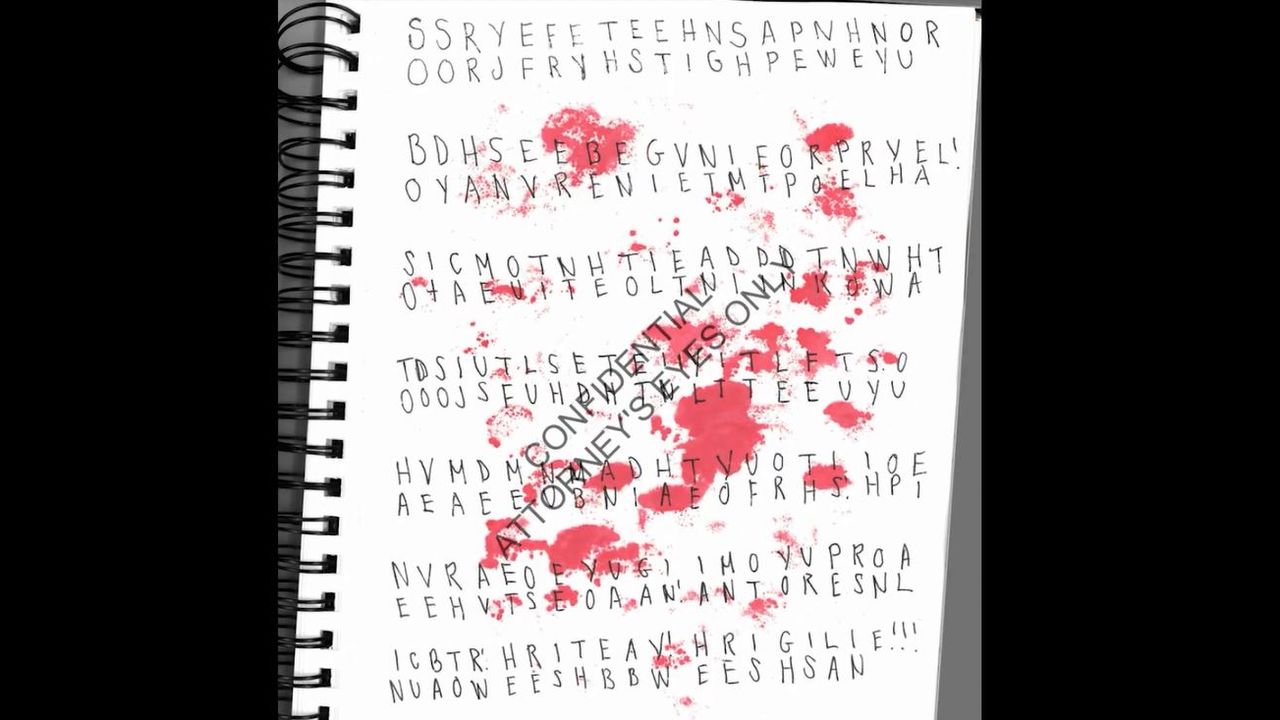 SSRYEFETEEHNSAPNHNOR
OORJFRYHSTIGHPEWEYU
BDHSEEBEGVNIEORPRYEL!
OYANVRENIETMTPOELHA
SICMOTNHTIEADDDTNWHT
O+AEUITEOLTNIINKOWA
TDSIUTLSETEIYITLFTS.O
OOOJSFUHDHTNLTTEEUYU
HVMDMNMADHTYUOTIIOE
AEAEEUBNIAEOFRHS.HPI
NVRAEOEYUGIIMOYUPROA
EEHVTSEOAAN!ANTORESNL
ICBTR.HRITEAY!HRIGILIE!!!
NUAOWEESHBBWEESHSAN
CONFIDENTIAL
ATTORNEY'S EYES ONLY